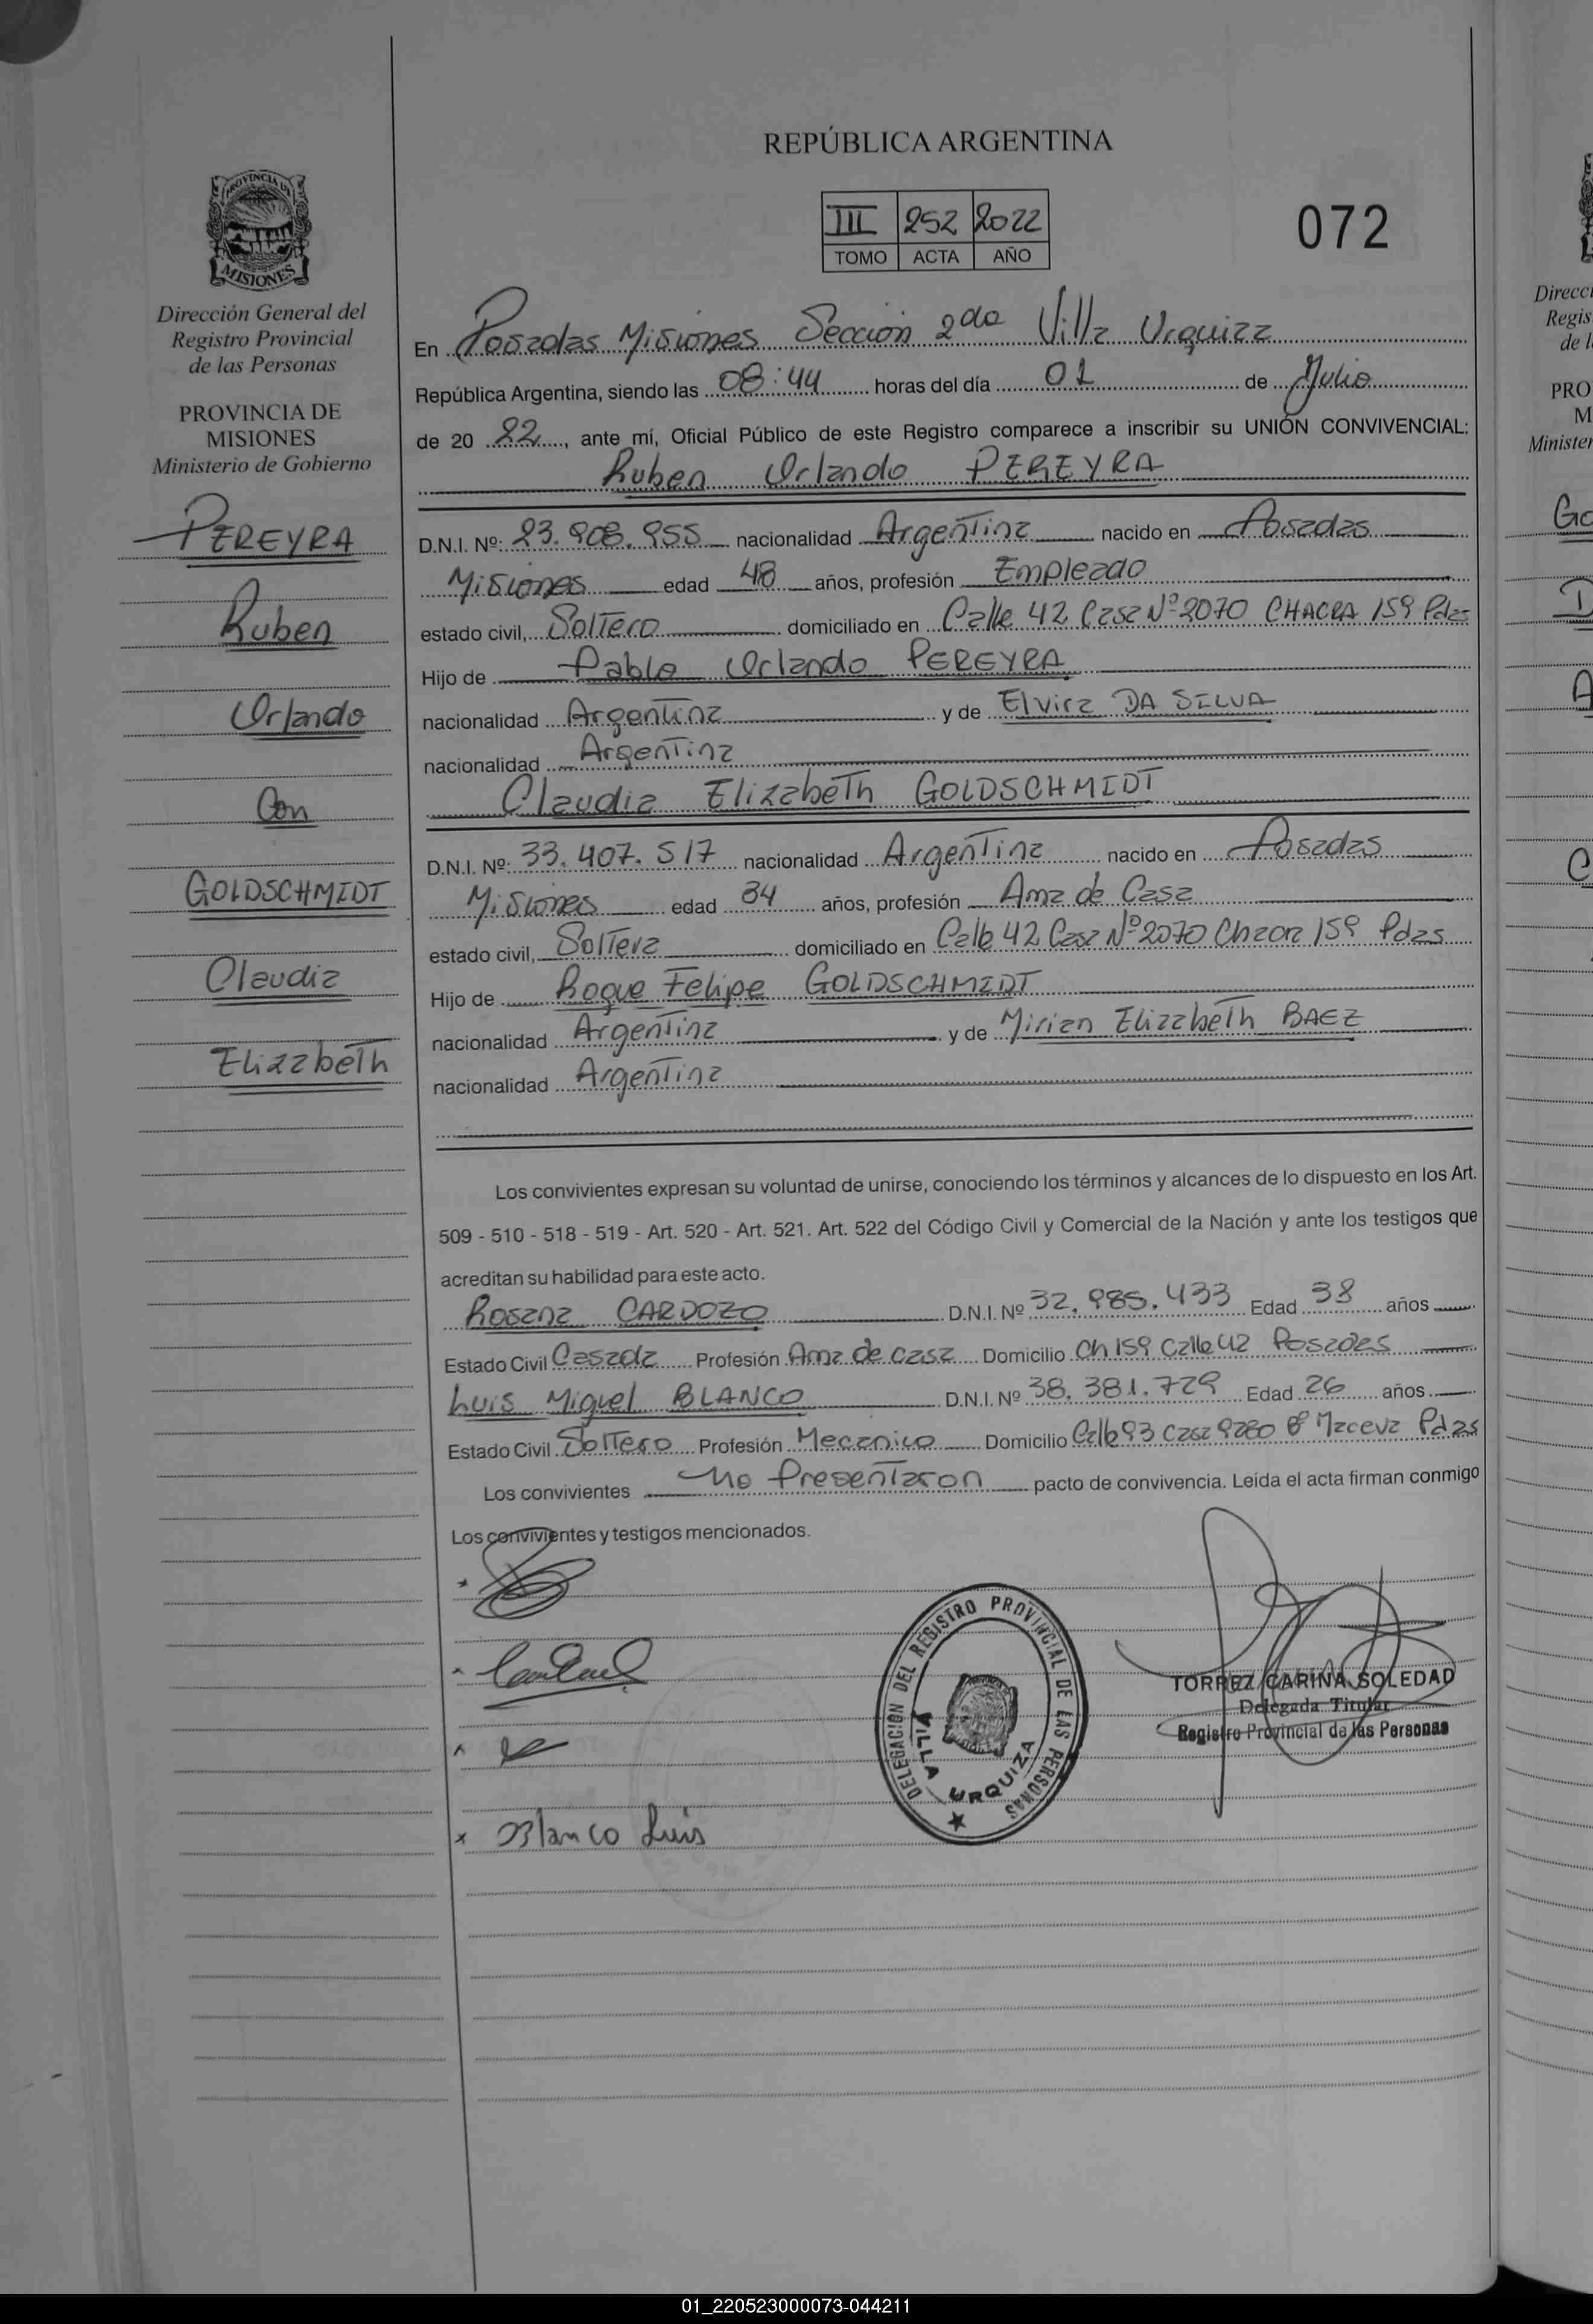 REPÚBLICA ARGENTINA
III 252 2022
TOMO ACTA AÑO
072
PROVINCIA DE
MISIONES
Dirección General del
Registro Provincial
de las Personas
PROVINCIA DE
MISIONES
Ministerio de Gobierno
PEREYRA
Ruben
Orlando
Con
GOLDSCHMIDT
Claudia
Elizabeth
En Posadas Misiones Sección 2da Villa Urquiza
República Argentina, siendo las 08:44 horas del día 01 de Julio
de 20 22, ante mí, Oficial Público de este Registro comparece a inscribir su UNIÓN CONVIVENCIAL:
Ruben Orlando PEREYRA
D.N.I. Nº: 23.908.955 nacionalidad Argentina nacido en Posadas
Misiones edad 48 años, profesión Empleado
estado civil, Soltero domiciliado en Calle 42 Casa Nº 2070 CHACRA 159 Pdas
Hijo de Pablo Orlando PEREYRA
nacionalidad Argentina y de Elvira DA SILVA
nacionalidad Argentina
Claudia Elizabeth GOLDSCHMIDT
D.N.I. Nº: 33.407.517 nacionalidad Argentina nacido en Posadas
Misiones edad 34 años, profesión Ama de Casa
estado civil, Soltera domiciliado en Calle 42 Casa Nº 2070 Chacra 159 Pdas
Hijo de Roque Felipe GOLDSCHMIDT
nacionalidad Argentina y de Mirian Elizabeth BAEZ
nacionalidad Argentina
Los convivientes expresan su voluntad de unirse, conociendo los términos y alcances de lo dispuesto en los Art.
509 - 510 - 518 - 519 - Art. 520 - Art. 521. Art. 522 del Código Civil y Comercial de la Nación y ante los testigos que
acreditan su habilidad para este acto.
Rosana CARDOZO D.N.I. Nº 32.985.433 Edad 38 años
Estado Civil Casada Profesión Ama de casa Domicilio Ch 159 Calle 42 Posadas
Luis Miguel BLANCO D.N.I. Nº 38.381.729 Edad 26 años
Estado Civil Soltero Profesión Mecanico Domicilio Calle 93 Casa 9280 Bº Maceva Pdas
Los convivientes No Presentaron pacto de convivencia. Leída el acta firman conmigo
Los convivientes y testigos mencionados.
Blanco Luis
DELEGACIÓN DEL REGISTRO PROVINCIAL DE LAS PERSONAS
VILLA URQUIZA
TORREZ CARINA SOLEDAD
Delegada Titular
Registro Provincial de las Personas
01_220523000073-044211